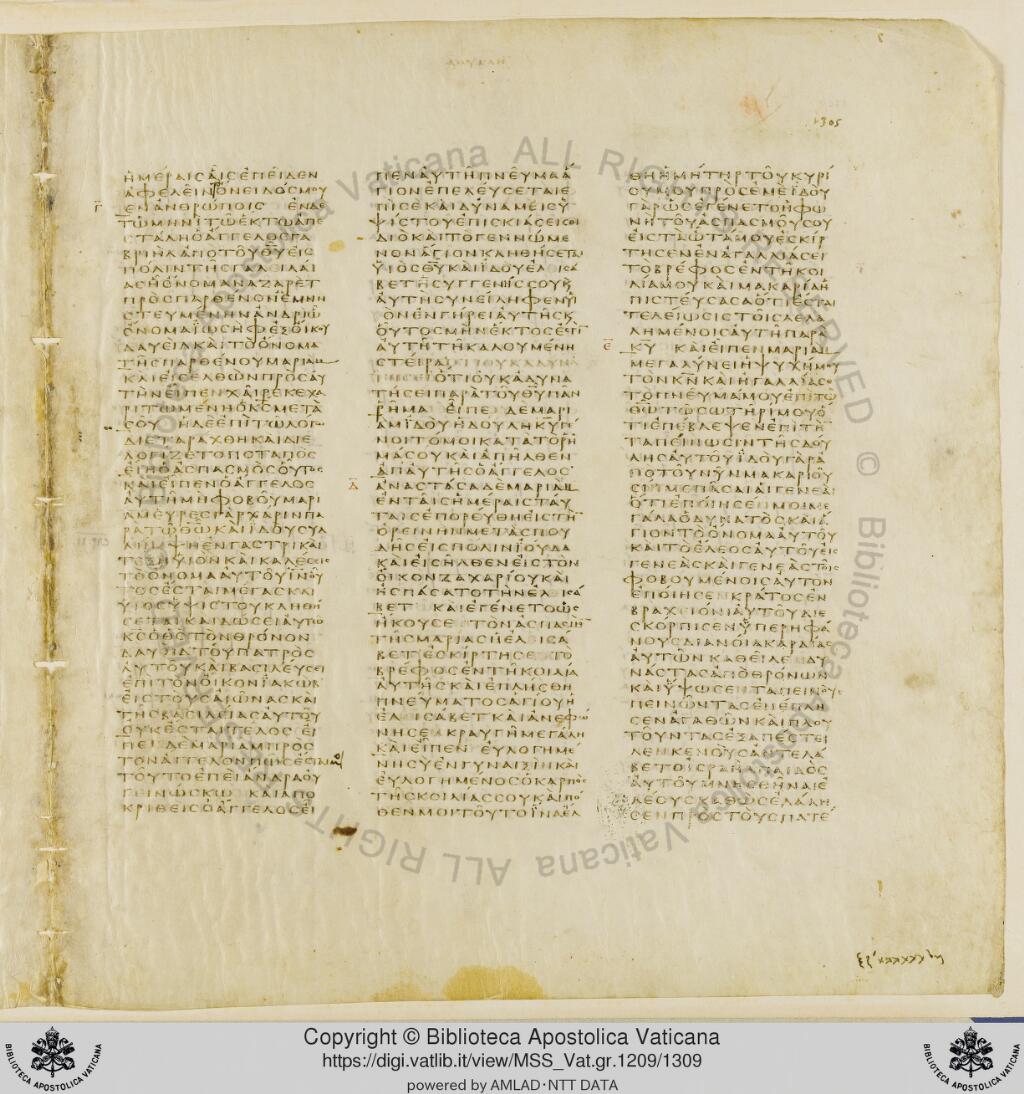 1305
ΗΜΕΡΑΙΣΑΙΣΕΠΕΙΔΕΝ
ΑΦΕΛΕΙΝΟΝΕΙΔΟΣΜΟΥ
ΕΝΑΝΘΡΩΠΟΙΣ ΕΝΔΕ
Γ
ΤΩΜΗΝΙΤΩΕΚΤΩΑΠΕ
ΣΤΑΛΗΟΑΓΓΕΛΟΣΓΑ
ΒΡΙΗΛΑΠΟΤΟΥΘΥΕΙΣ
ΠΟΛΙΝΤΗΣΓΑΛΕΙΛΑΙ
ΑΣΗΟΝΟΜΑΝΑΖΑΡΕΤ
ΠΡΟΣΠΑΡΘΕΝΟΝΕΜΝΗ
ΣΤΕΥΜΕΝΗΝΑΝΔΡΙΩ
ΟΝΟΜΑΙΩΣΗΦΕΞΟΙΚΟΥ
ΔΑΥΕΙΔΚΑΙΤΟΟΝΟΜΑ
ΤΗΣΠΑΡΘΕΝΟΥΜΑΡΙΑΜ
ΚΑΙΕΙΣΕΛΘΩΝΠΡΟΣΑΥ
ΤΗΝΕΙΠΕΝΧΑΙΡΕΚΕΧΑ
ΡΙΤΩΜΕΝΗΟΚΣΜΕΤΑ
ΣΟΥ ΗΔΕΕΠΙΤΩΛΟΓΩ
ΔΙΕΤΑΡΑΧΘΗΚΑΙΔΙΕ
ΛΟΓΙΖΕΤΟΠΟΤΑΠΟΣ
ΕΙΗΟΑΣΠΑΣΜΟΣΟΥΤΟΣ
ΚΑΙΕΙΠΕΝΟΑΓΓΕΛΟΣ
ΑΥΤΗΜΗΦΟΒΟΥΜΑΡΙ
ΑΜΕΥΡΕΣΓΑΡΧΑΡΙΝΠΑ
ΡΑΤΩΘΩΚΑΙΙΔΟΥΣΥΛ
ΛΗΜΨΗΕΝΓΑΣΤΡΙΚΑΙ
ΤΕΞΗΥΙΟΝΚΑΙΚΑΛΕΣΕΙΣ
ΤΟΟΝΟΜΑΑΥΤΟΥΙΝΟΥ
ΤΟΣΕΣΤΑΙΜΕΓΑΣΚΑΙ
ΥΙΟΣΥΨΙΣΤΟΥΚΛΗΘΗ
ΣΕΤΑΙΚΑΙΔΩΣΕΙΑΥΤΩ
ΚΣΟΘΣΤΟΝΘΡΟΝΟΝ
ΔΑΥΕΙΔΤΟΥΠΑΤΡΟΣ
ΑΥΤΟΥΚΑΙΒΑΣΙΛΕΥΣΕΙ
ΕΠΙΤΟΝΟΙΚΟΝΙΑΚΩΒ
ΕΙΣΤΟΥΣΑΙΩΝΑΣΚΑΙ
ΤΗΣΒΑΣΙΛΕΙΑΣΑΥΤΟΥ
ΟΥΚΕΣΤΑΙΤΕΛΟΣ ΕΙ
ΠΕΝΔΕΜΑΡΙΑΜΠΡΟΣ
ΤΟΝΑΓΓΕΛΟΝΠΩΣΕΣΤΑΙ
ΤΟΥΤΟΕΠΕΙΑΝΔΡΑΟΥ
ΓΕΙΝΩΣΚΩ ΚΑΙΑΠΟ
ΚΡΙΘΕΙΣΟΑΓΓΕΛΟΣΕΙ
ΠΕΝΑΥΤΗΠΝΕΥΜΑΑ
ΓΙΟΝΕΠΕΛΕΥΣΕΤΑΙΕ
ΠΙΣΕΚΑΙΔΥΝΑΜΕΙΣΥ
ΨΙΣΤΟΥΕΠΙΣΚΙΑΣΕΙΣΟΙ
ΔΙΟΚΑΙΤΟΓΕΝΝΩΜΕ
ΝΟΝΑΓΙΟΝΚΛΗΘΗΣΕΤΑΙ
ΥΙΟΣΘΥΚΑΙΙΔΟΥΕΛΙΣΑ
ΒΕΤΗΣΥΓΓΕΝΙΣΣΟΥΚ
ΑΥΤΗΣΥΝΕΙΛΗΦΕΝΥΙ
ΟΝΕΝΓΗΡΕΙΑΥΤΗΣΚ
ΟΥΤΟΣΜΗΝΕΚΤΟΣΕΣΤΙ
ΑΥΤΗΤΗΚΑΛΟΥΜΕΝΗ
ΣΤΕΙΡΑ
ΟΤΙΟΥΚΑΔΥΝΑ
ΤΗΣΕΙΠΑΡΑΤΟΥΘΥΠΑΝ
ΡΗΜΑ ΕΙΠΕΝΔΕΜΑΡΙ
ΑΜΙΔΟΥΗΔΟΥΛΗΚΥΓΕ
ΝΟΙΤΟΜΟΙΚΑΤΑΤΟΡΗ
ΜΑΣΟΥΚΑΙΑΠΗΛΘΕΝ
ΑΠΑΥΤΗΣΟΑΓΓΕΛΟΣ
Δ
ΑΝΑΣΤΑΣΑΔΕΜΑΡΙΑΜ
ΕΝΤΑΙΣΗΜΕΡΑΙΣΤΑΥ
ΤΑΙΣΕΠΟΡΕΥΘΗΕΙΣΤΗ
ΟΡΕΙΝΗΝΜΕΤΑΣΠΟΥ
ΔΗΣΕΙΣΠΟΛΙΝΙΟΥΔΑ
ΚΑΙΕΙΣΗΛΘΕΝΕΙΣΤΟΝ
ΟΙΚΟΝΖΑΧΑΡΙΟΥΚΑΙ
ΗΣΠΑΣΑΤΟΤΗΝΕΛΙΣΑ
ΒΕΤ ΚΑΙΕΓΕΝΕΤΟΩΣ
ΗΚΟΥΣΕΝΤΟΝΑΣΠΑΣΜΟ
ΤΗΣΜΑΡΙΑΣΗΕΛΙΣΑ
ΒΕΤΕΣΚΙΡΤΗΣΕΝΤΟ
ΒΡΕΦΟΣΕΝΤΗΚΟΙΛΙΑ
ΑΥΤΗΣΚΑΙΕΠΛΗΣΘΗ
ΠΝΕΥΜΑΤΟΣΑΓΙΟΥΗ
ΕΛΙΣΑΒΕΤΚΑΙΑΝΕΦΩ
ΝΗΣΕΝΚΡΑΥΓΗΜΕΓΑΛΗ
ΚΑΙΕΙΠΕΝ ΕΥΛΟΓΗΜΕ
ΝΗΣΥΕΝΓΥΝΑΙΞΙΝΚΑΙ
ΕΥΛΟΓΗΜΕΝΟΣΟΚΑΡΠΟΣ
ΤΗΣΚΟΙΛΙΑΣΣΟΥΚΑΙΠΟ
ΘΕΝΜΟΙΤΟΥΤΟΙΝΑΕΛ
ΘΗΗΜΗΤΗΡΤΟΥΚΥΡΙ
ΟΥΜΟΥΠΡΟΣΕΜΕΙΔΟΥ
ΓΑΡΩΣΕΓΕΝΕΤΟΗΦΩ
ΝΗΤΟΥΑΣΠΑΣΜΟΥΣΟΥ
ΕΙΣΤΑΩΤΑΜΟΥΕΣΚΙΡ
ΤΗΣΕΝΕΝΑΓΑΛΛΙΑΣΕΙ
ΤΟΒΡΕΦΟΣΕΝΤΗΚΟΙ
ΛΙΑΜΟΥΚΑΙΜΑΚΑΡΙΑΗ
ΠΙΣΤΕΥΣΑΣΑΟΤΙΕΣΤΑΙ
ΤΕΛΕΙΩΣΙΣΤΟΙΣΛΕΛΑ
ΛΗΜΕΝΟΙΣΑΥΤΗΠΑΡΑ
Ε
ΚΥ ΚΑΙΕΙΠΕΝΜΑΡΙΑΜ
ΜΕΓΑΛΥΝΕΙΗΨΥΧΗΜΟΥ
ΤΟΝΚΝΚΑΙΗΓΑΛΛΙΑΣΕ
ΤΟΠΝΕΥΜΑΜΟΥΕΠΙΤΩ
ΘΩΤΩΣΩΤΗΡΙΜΟΥΟ
ΤΙΕΠΕΒΛΕΨΕΝΕΠΙΤΗ
ΤΑΠΕΙΝΩΣΙΝΤΗΣΔΟΥ
ΛΗΣΑΥΤΟΥΙΔΟΥΓΑΡΑ
ΠΟΤΟΥΝΥΝΜΑΚΑΡΙΟΥ
ΣΙΝΜΕΠΑΣΑΙΑΙΓΕΝΕΑΙ
ΟΤΙΕΠΟΙΗΣΕΝΜΟΙΜΕ
ΓΑΛΑΟΔΥΝΑΤΟΣΚΑΙΑ
ΓΙΟΝΤΟΟΝΟΜΑΑΥΤΟΥ
ΚΑΙΤΟΕΛΕΟΣΑΥΤΟΥΕΙΣ
ΓΕΝΕΑΣΚΑΙΓΕΝΕΑΣΤΟΙΣ
ΦΟΒΟΥΜΕΝΟΙΣΑΥΤΟΝ
ΕΠΟΙΗΣΕΝΚΡΑΤΟΣΕΝ
ΒΡΑΧΕΙΟΝΙΑΥΤΟΥΔΙΕ
ΣΚΟΡΠΙΣΕΝΥΠΕΡΗΦΑ
ΝΟΥΣΔΙΑΝΟΙΑΚΑΡΔΙΑΣ
ΑΥΤΩΝΚΑΘΕΙΛΕΝΔΥ
ΝΑΣΤΑΣΑΠΟΘΡΟΝΩΝ
ΚΑΙΥΨΩΣΕΝΤΑΠΕΙΝΟΥΣ
ΠΕΙΝΩΝΤΑΣΕΝΕΠΛΗ
ΣΕΝΑΓΑΘΩΝΚΑΙΠΛΟΥ
ΤΟΥΝΤΑΣΕΞΑΠΕΣΤΕΙ
ΛΕΝΚΕΝΟΥΣΑΝΤΕΛΑ
ΒΕΤΟΙΣΡΑΗΛΠΑΙΔΟΣ
ΑΥΤΟΥΜΝΗΣΘΗΝΑΙΕ
ΛΕΟΥΣΚΑΘΩΣΕΛΑΛΗ
ΣΕΝΠΡΟΣΤΟΥΣΠΑΤΕ
Copyright © Biblioteca Apostolica Vaticana
https://digi.vatlib.it/view/MSS_Vat.gr.1209/1309
powered by AMLAD·NTT DATA
BIBLIOTECA APOSTOLICA VATICANA
BIBLIOTECA APOSTOLICA VATICANA